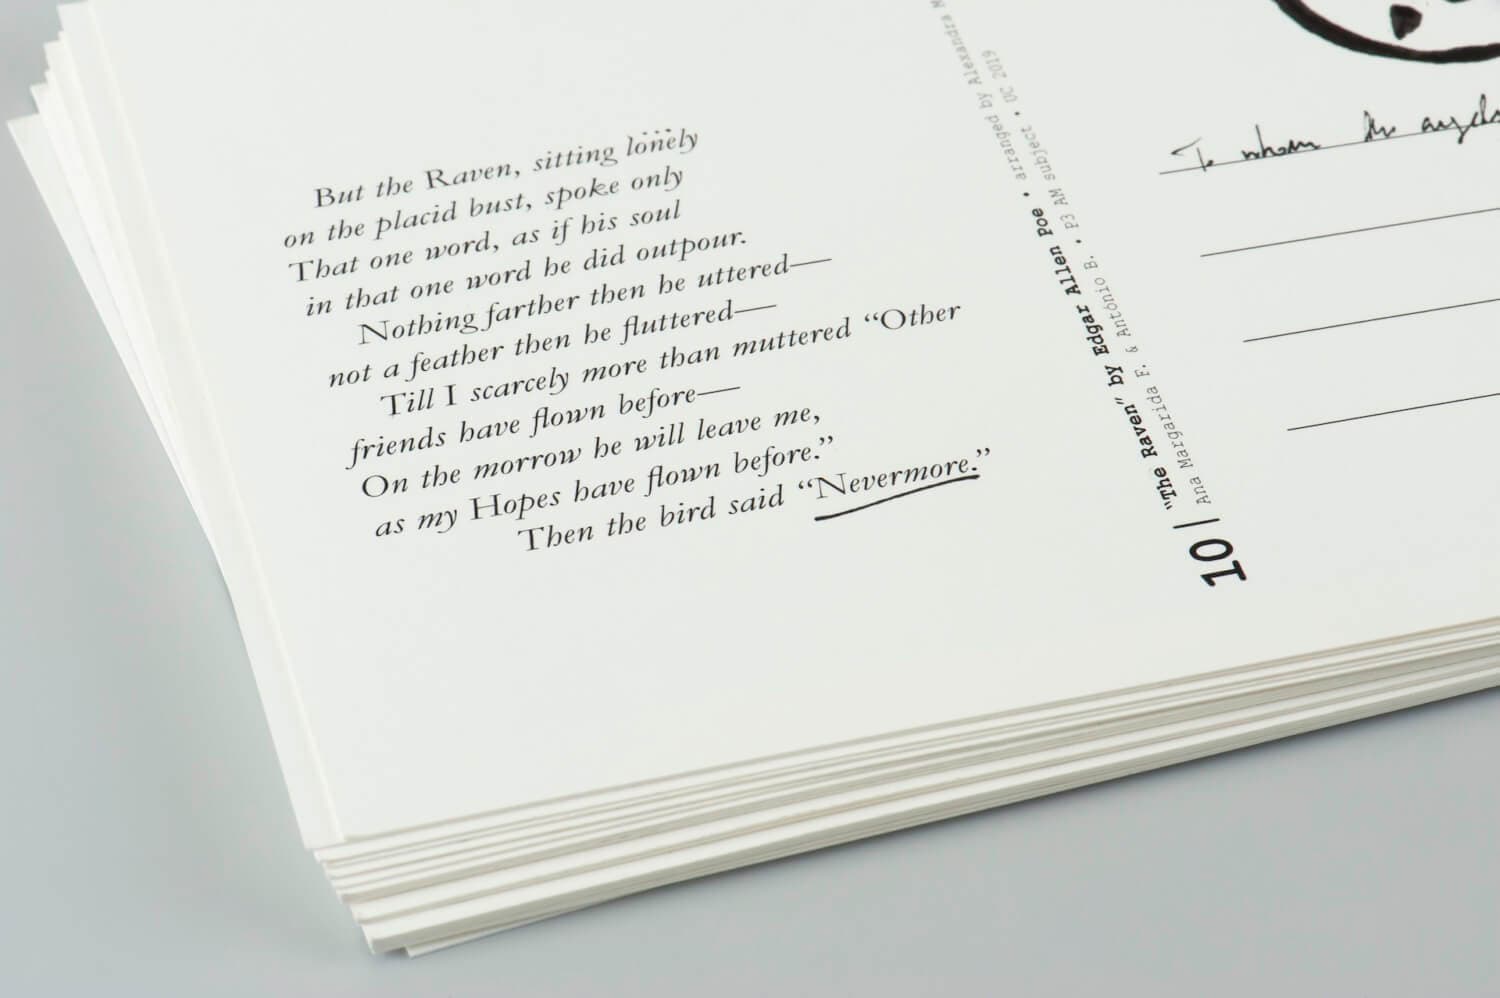 But the Raven, sitting lonely
on the placid bust, spoke only
That one word, as if his soul
in that one word he did outpour.
Nothing farther then he uttered—
not a feather then he fluttered—
Till I scarcely more than muttered “Other
friends have flown before—
On the morrow he will leave me,
as my Hopes have flown before.”
Then the bird said “Nevermore.”
10 | "The Raven" by Edgar Allen Poe • arranged by Alexandra
Ana Margarida F. & António B. • P3 AM subject • UC 2019
To whom the angels